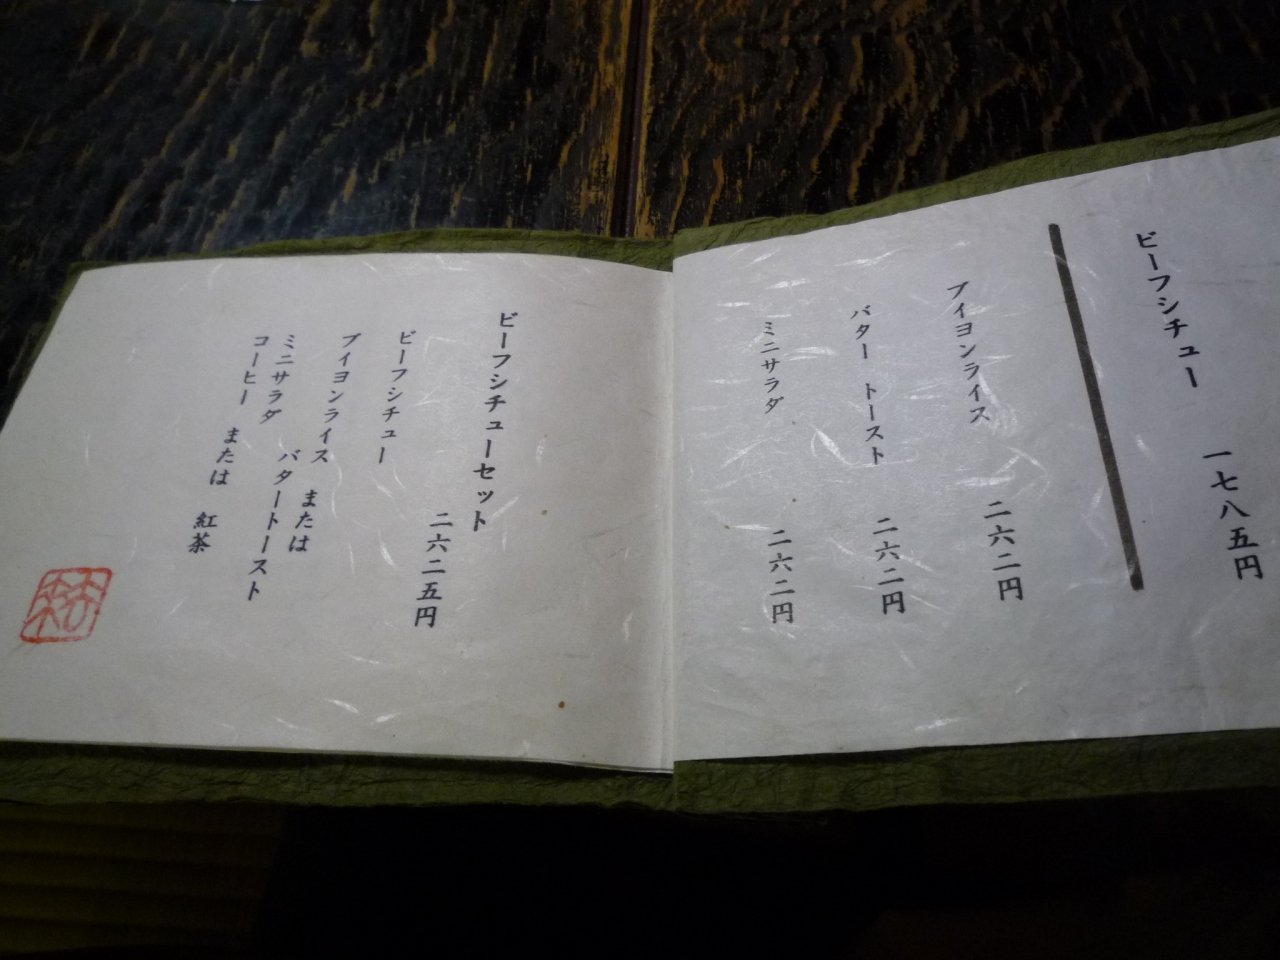 ビーフシチュー 一七八五円
ブイヨンライス 二六二円
バター トースト 二六二円
ミニサラダ 二六二円
ビーフシチューセット
二六二五円
ビーフシチュー
ブイヨンライス または
バタートースト
ミニサラダ
コーヒー または 紅茶